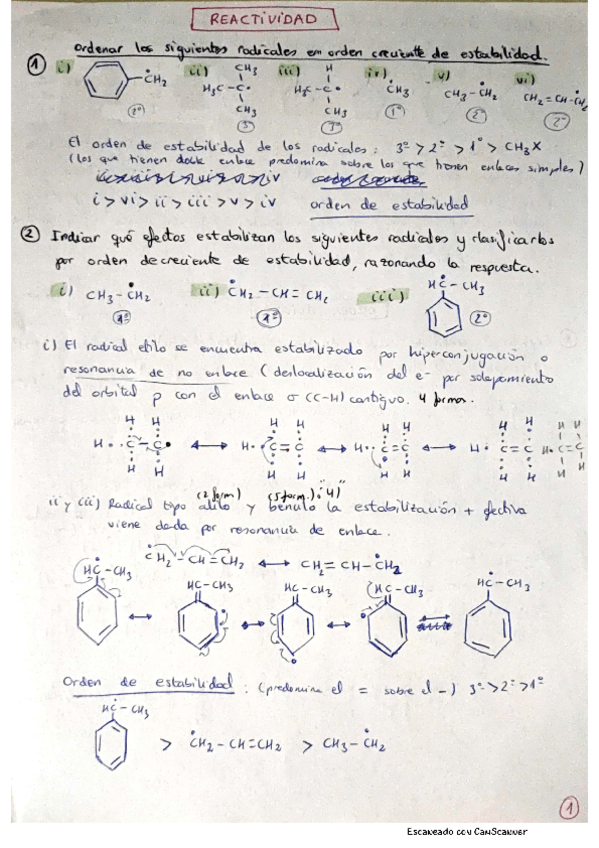 REACTIVIDAD
Ordenar los siguientes radicales en orden creciente de estabilidad.
① i) ĊH₂ ii) CH₃ H₃C - C• CH₃ iii) H H₃C - C• CH₃ iv) ĊH₃ v) CH₃ - ĊH₂ vi) CH₂ = CH - ĊH₂
El orden de estabilidad de los radicales: 3º > 2º > 1º > CH₃X
(los que tienen doble enlace predomina sobre los que tienen enlaces simples)
i > vi > ii > iii > v > iv orden de estabilidad
② Indicar qué efectos estabilizan los siguientes radicales y clasificarlos
por orden decreciente de estabilidad, razonando la respuesta.
i) CH₃ - ĊH₂ 1º ii) ĊH₂ - CH = CH₂ 1º iii) HĊ - CH₃ 2º
i) El radical etilo se encuentra estabilizado por hiperconjugación o
resonancia de no enlace (deslocalización del e⁻ por solapamiento
del orbital p con el enlace σ (C-H) contiguo. 4 formas.
ii y iii) Radical tipo alilo (2 form) y bencilo (5 form.) "4" la estabilización + efectiva
viene dada por resonancia de enlace.
ĊH₂ - CH = CH₂ ↔ CH₂ = CH - ĊH₂
HĊ - CH₃ ↔ HC - CH₃ ↔ HC = CH₃ ↔ HC = CH₃ ↔ HĊ - CH₃
Orden de estabilidad: (predomina el = sobre el -) 3º > 2º > 1º
HĊ - CH₃
> ĊH₂ - CH = CH₂ > CH₃ - ĊH₂
1
Escaneado con CamScanner